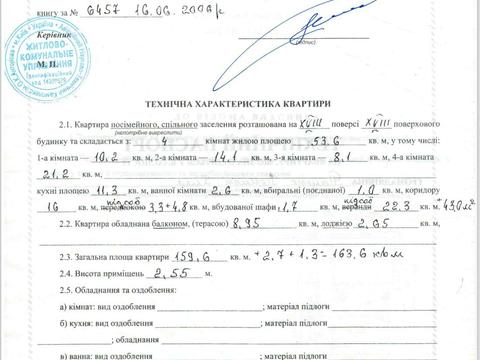 книгу за № 6457 16.06.2006р
Керівник
М. П.
(підпис)
ЖИТЛОВО-
КОМУНАЛЬНЕ
УПРАВЛІННЯ
Ідентифікаційний
код
ТЕХНІЧНА ХАРАКТЕРИСТИКА КВАРТИРИ
2.1. Квартира посімейного, спільного заселення розташована на XVIII поверсі XVIII поверхового
(непотрібне викреслити)
будинку та складається з: 4 кімнат жилою площею 53.6 кв. м, у тому числі:
1-а кімната — 10,2 кв. м, 2-а кімната — 14,1 кв. м, 3-я кімната — 8,1 кв. м, 4-а кімната
21,2 кв. м,
кухні площею 11,3 кв. м, ванної кімнати 2,6 кв. м, вбиральні (поєднаної) 1,0 кв. м, коридору
16 кв. м, підсоб передпокою 3,3+4,8 кв. м, вбудованої шафи 1,7 кв. м, підсоб веранди 22.3 кв. м +43,0м²
2.2. Квартира обладнана балконом, (терасою) 8,95 кв. м, лоджією 2,65 кв. м.
2.3. Загальна площа квартири 159,6 кв. м. +2,7+1,3=163,6 кв.м
2.4. Висота приміщень 2,55 м.
2.5. Обладнання та оздоблення:
а) кімнат: вид оздоблення ; матеріал підлоги
б) кухня: вид оздоблення ; матеріал підлоги
; обладнання
в) ванна: вид оздоблення ; матеріал підлоги